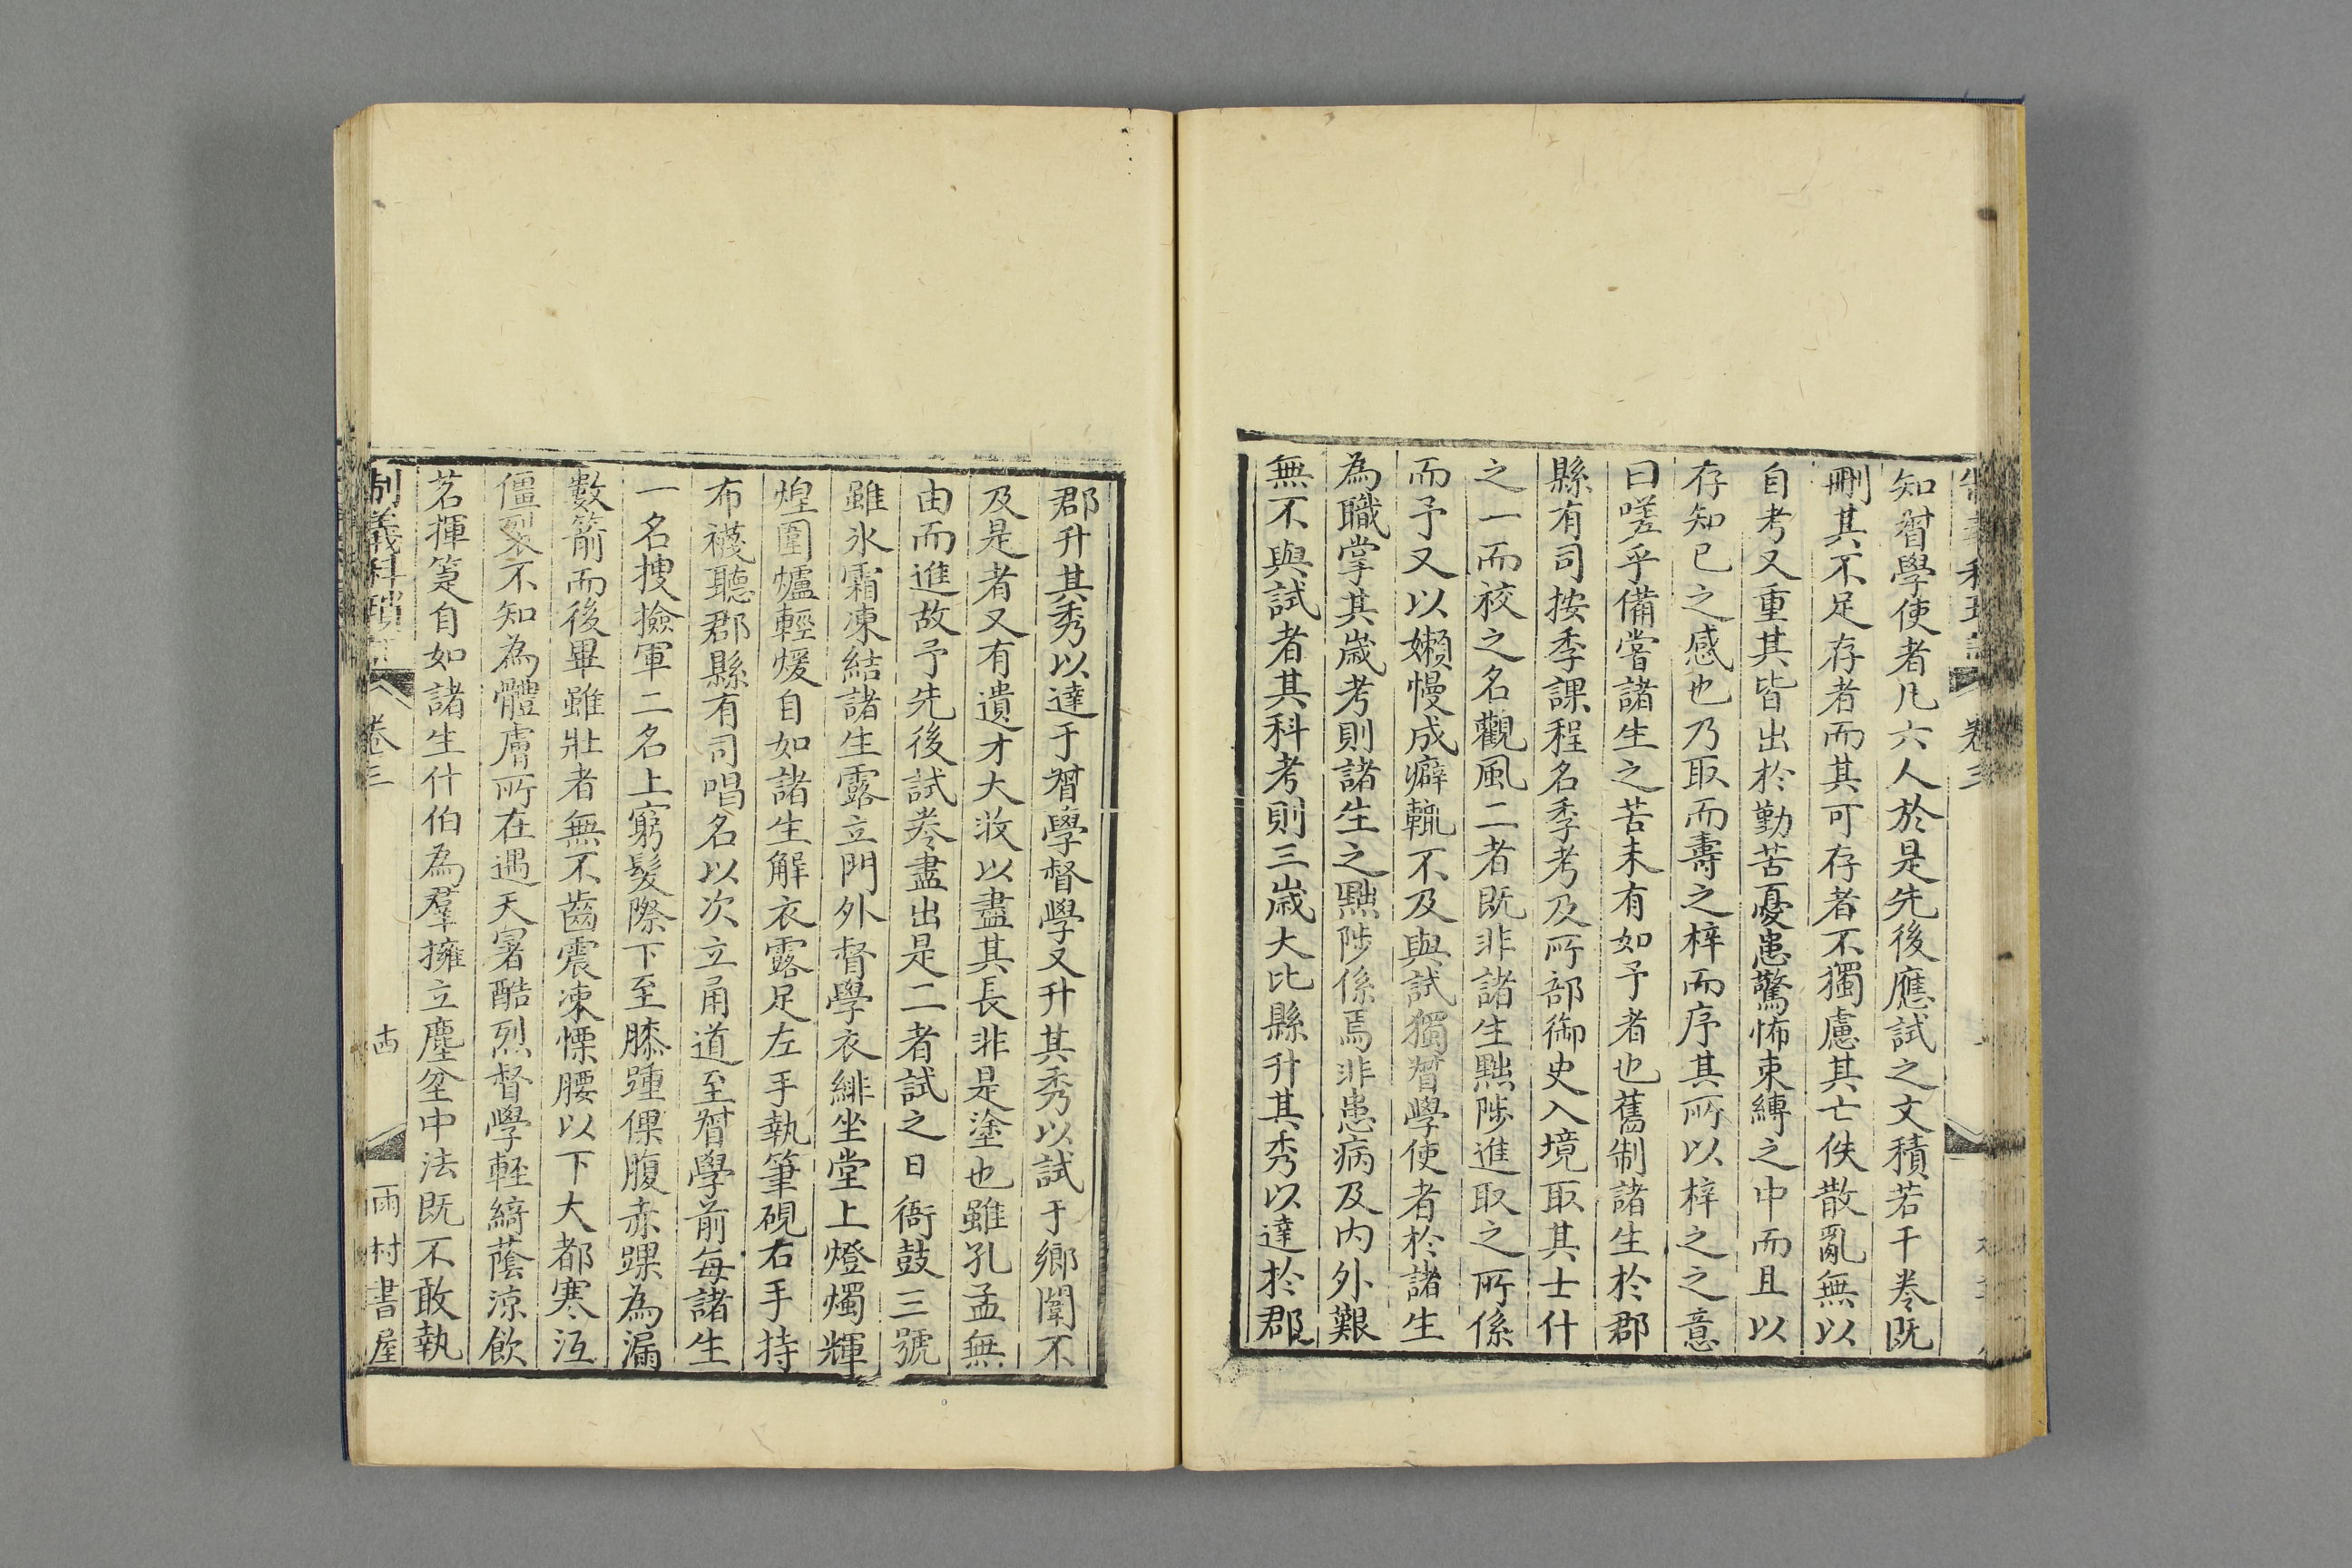 知督學使者凡六人於是先後應試之文積若干卷既
刪其不足存者而其可存者不獨慮其亡佚散亂無以
自考又重其皆出於勤苦憂患驚怖束縛之中而且以
存知已之感也乃取而壽之梓而序其所以梓之之意
曰嗟乎備嘗諸生之苦未有如予者也舊制諸生於郡
縣有司按季課程名季考及所部御史入境取其士什
之一而校之名觀風二者既非諸生黜陟進取之所係
而予又以嬾慢成癖輒不及與試獨督學使者於諸生
為職掌其歲考則諸生之黜陟係焉非患病及内外艱
無不與試者其科考則三歲大比縣升其秀以達於郡
郡升其秀以達于督學督學又升其秀以試于鄉闈不
及是者又有遺才大收以盡其長非是塗也雖孔孟無
由而進故予先後試卷盡出是二者試之日衙鼓三號
雖氷霜凍結諸生露立門外督學衣緋坐堂上燈燭輝
煌圍爐輕煖自如諸生解衣露足左手執筆硯右手持
布襪聽郡縣有司唱名以次立甬道至督學前每諸生
一名搜撿軍二名上窮髮際下至膝踵倮腹赤踝為漏
數箭而後畢雖壯者無不齒震凍慄腰以下大都寒沍
僵裂不知為體膚所在遇天暑酷烈督學輕綺蔭涼飲
茗揮箑自如諸生什伯為羣擁立塵坌中法既不敢執
制義科瑣記 卷三 十四 雨村書屋